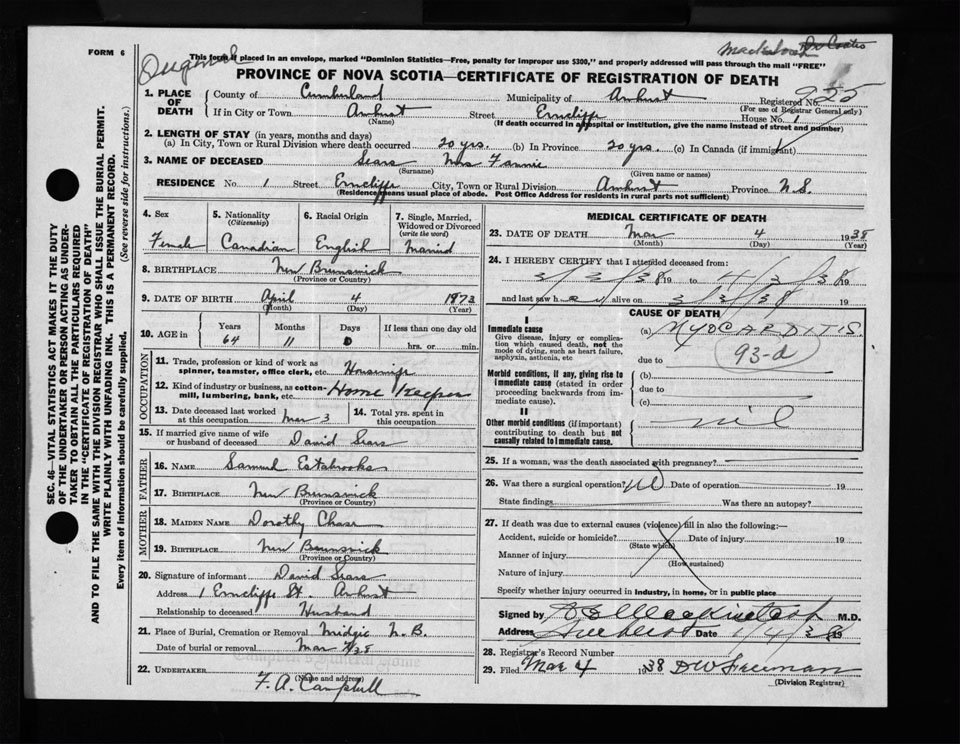 FORM 6
Original
Mackintosh Dr Coates
This form if placed in an envelope, marked "Dominion Statistics—Free, penalty for improper use $300," and properly addressed will pass through the mail "FREE"
PROVINCE OF NOVA SCOTIA—CERTIFICATE OF REGISTRATION OF DEATH
1. PLACE OF DEATH
County of Cumberland Municipality of Amherst Registered No. 955
(For use of Registrar General only)
If in City or Town Amherst Street Erncliffe House No. 1
(Name) (If death occurred in a hospital or institution, give the name instead of street and number)
2. LENGTH OF STAY (in years, months and days)
(a) In City, Town or Rural Division where death occurred 20 yrs. (b) In Province 20 yrs. (c) In Canada (if immigrant)
3. NAME OF DECEASED Sears Mrs Fannie
(Surname) (Given name or names)
RESIDENCE No. 1 Street Erncliffe City, Town or Rural Division Amherst Province N.S.
(Residence means usual place of abode. Post Office Address for residents in rural parts not sufficient)
4. Sex Female
5. Nationality (Citizenship) Canadian
6. Racial Origin English
7. Single, Married, Widowed or Divorced (write the word) Married
8. BIRTHPLACE New Brunswick
(Province or Country)
9. DATE OF BIRTH April 4 1873
(Month) (Day) (Year)
10. AGE in Years Months Days If less than one day old
64 11 0 hrs. or min.
OCCUPATION
11. Trade, profession or kind of work as spinner, teamster, office clerk, etc. Housewife
12. Kind of industry or business, as cotton-mill, lumbering, bank, etc. Home Keeper
13. Date deceased last worked at this occupation Mar 3
14. Total yrs. spent in this occupation
15. If married give name of wife or husband of deceased David Sears
FATHER
16. NAME Samuel Estabrooks
17. BIRTHPLACE New Brunswick
(Province or Country)
MOTHER
18. MAIDEN NAME Dorothy Chase
19. BIRTHPLACE New Brunswick
(Province or Country)
20. Signature of informant David Sears
Address 1 Erncliffe St. Amherst
Relationship to deceased Husband
21. Place of Burial, Cremation or Removal Midgic N.B.
Date of burial or removal Mar 7/38
22. UNDERTAKER F. A. Campbell
(Name and address)
MEDICAL CERTIFICATE OF DEATH
23. DATE OF DEATH Mar 4 1938
(Month) (Day) (Year)
24. I HEREBY CERTIFY that I attended deceased from:
3/3/38 19 to 4/3/38 19
and last saw her alive on 3/3/38 19
CAUSE OF DEATH
I
Immediate cause
Give disease, injury or complication which caused death, not the mode of dying, such as heart failure, asphyxia, asthenia, etc
(a) MYOCARDITIS.
93-d
due to
Morbid conditions, if any, giving rise to immediate cause (stated in order proceeding backwards from immediate cause).
(b)
due to
(c)
II
Other morbid conditions (if important) contributing to death but not causally related to immediate cause.
nil
25. If a woman, was the death associated with pregnancy?
26. Was there a surgical operation? no Date of operation 19
State findings Was there an autopsy?
27. If death was due to external causes (violence) fill in also the following:—
Accident, suicide or homicide? Date of injury 19
(State which)
Manner of injury
(How sustained)
Nature of injury
Specify whether injury occurred in industry, in home, or in public place
Signed by Mackintosh M.D.
Address Amherst Date
28. Registrar's Record Number
29. Filed Mar 4 1938 D W Freeman
(Division Registrar)
SEC. 46—VITAL STATISTICS ACT MAKES IT THE DUTY
OF THE UNDERTAKER OR PERSON ACTING AS UNDER-
TAKER TO OBTAIN ALL THE PARTICULARS REQUIRED
IN THE "CERTIFICATE OF REGISTRATION OF DEATH"
AND TO FILE THE SAME WITH THE DIVISION REGISTRAR WHO SHALL ISSUE THE BURIAL PERMIT.
WRITE PLAINLY WITH UNFADING INK. THIS IS A PERMANENT RECORD.
Every item of information should be carefully supplied. (See reverse side for instructions.)